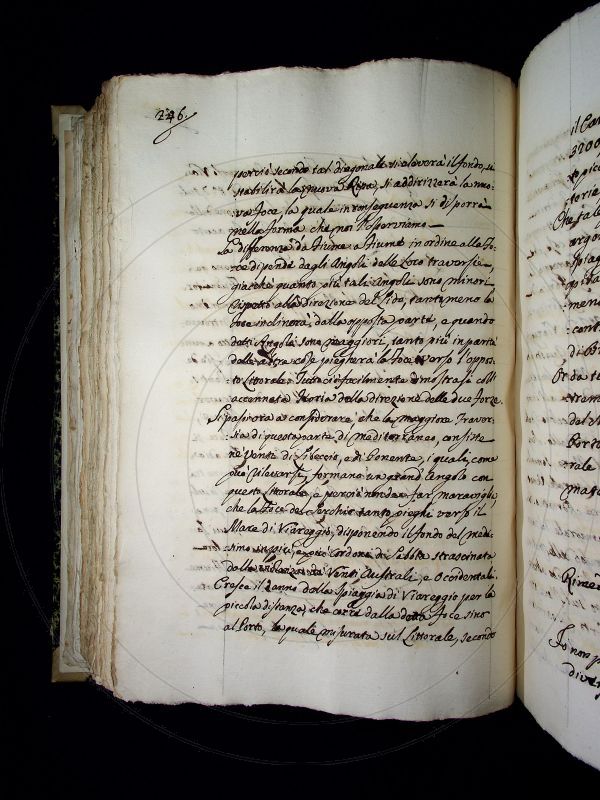 246.
perciò secondo tal diagonale si eleverà il fondo, si
stabilirà la nuova Ripa, si addirizzerà la nuo-
va foce la quale in conseguenza si disporrà
nella forma che noi osserviamo
La differenza da fiume a fiume in ordine alla fo-
ce dipende dagli Angoli delle loro traversie,
giacchè quanto più tali angoli sono minori
rispetto alla Direzione del Lido, tanto meno la
foce inclinerà dalla opposta parte, e quando
dati Angoli sono maggiori, tanto più in parità
delle altre cose piegherà la foce verso l'oppos-
to Littorale. Tutto ciò facilmente dimostrasi coll'
accennata Teoria della direzione delle due forze.
Si passi ora a considerare che la maggiore Traver-
sia di questa parte di Mediterraneo, consiste
ne' Venti di Libeccio, e di Ponente, i quali, come
può rilevarsi, formano un grand'Angolo con
questo littorale, e perciò non dee far maraviglia,
che la foce del Serchio tanto pieghi verso il
Mare di Viareggio, disponendo il fondo del mede-
simo cordone di Sabbia strascinata
dalla violenza de' Venti Australi, e Occidentali.
Cresce il danno dalla Spiaggia di Viareggio per la
piccola distanza, che dalla detta foce sino
al Porto, la quale misurata sul Littorale, secondo
il Ca
3200
to pico
torie
Che tale
argo
spiag
meno
cont
di B
Or da t
del S
Porto
rale
mag
Rime
Io non p
diver